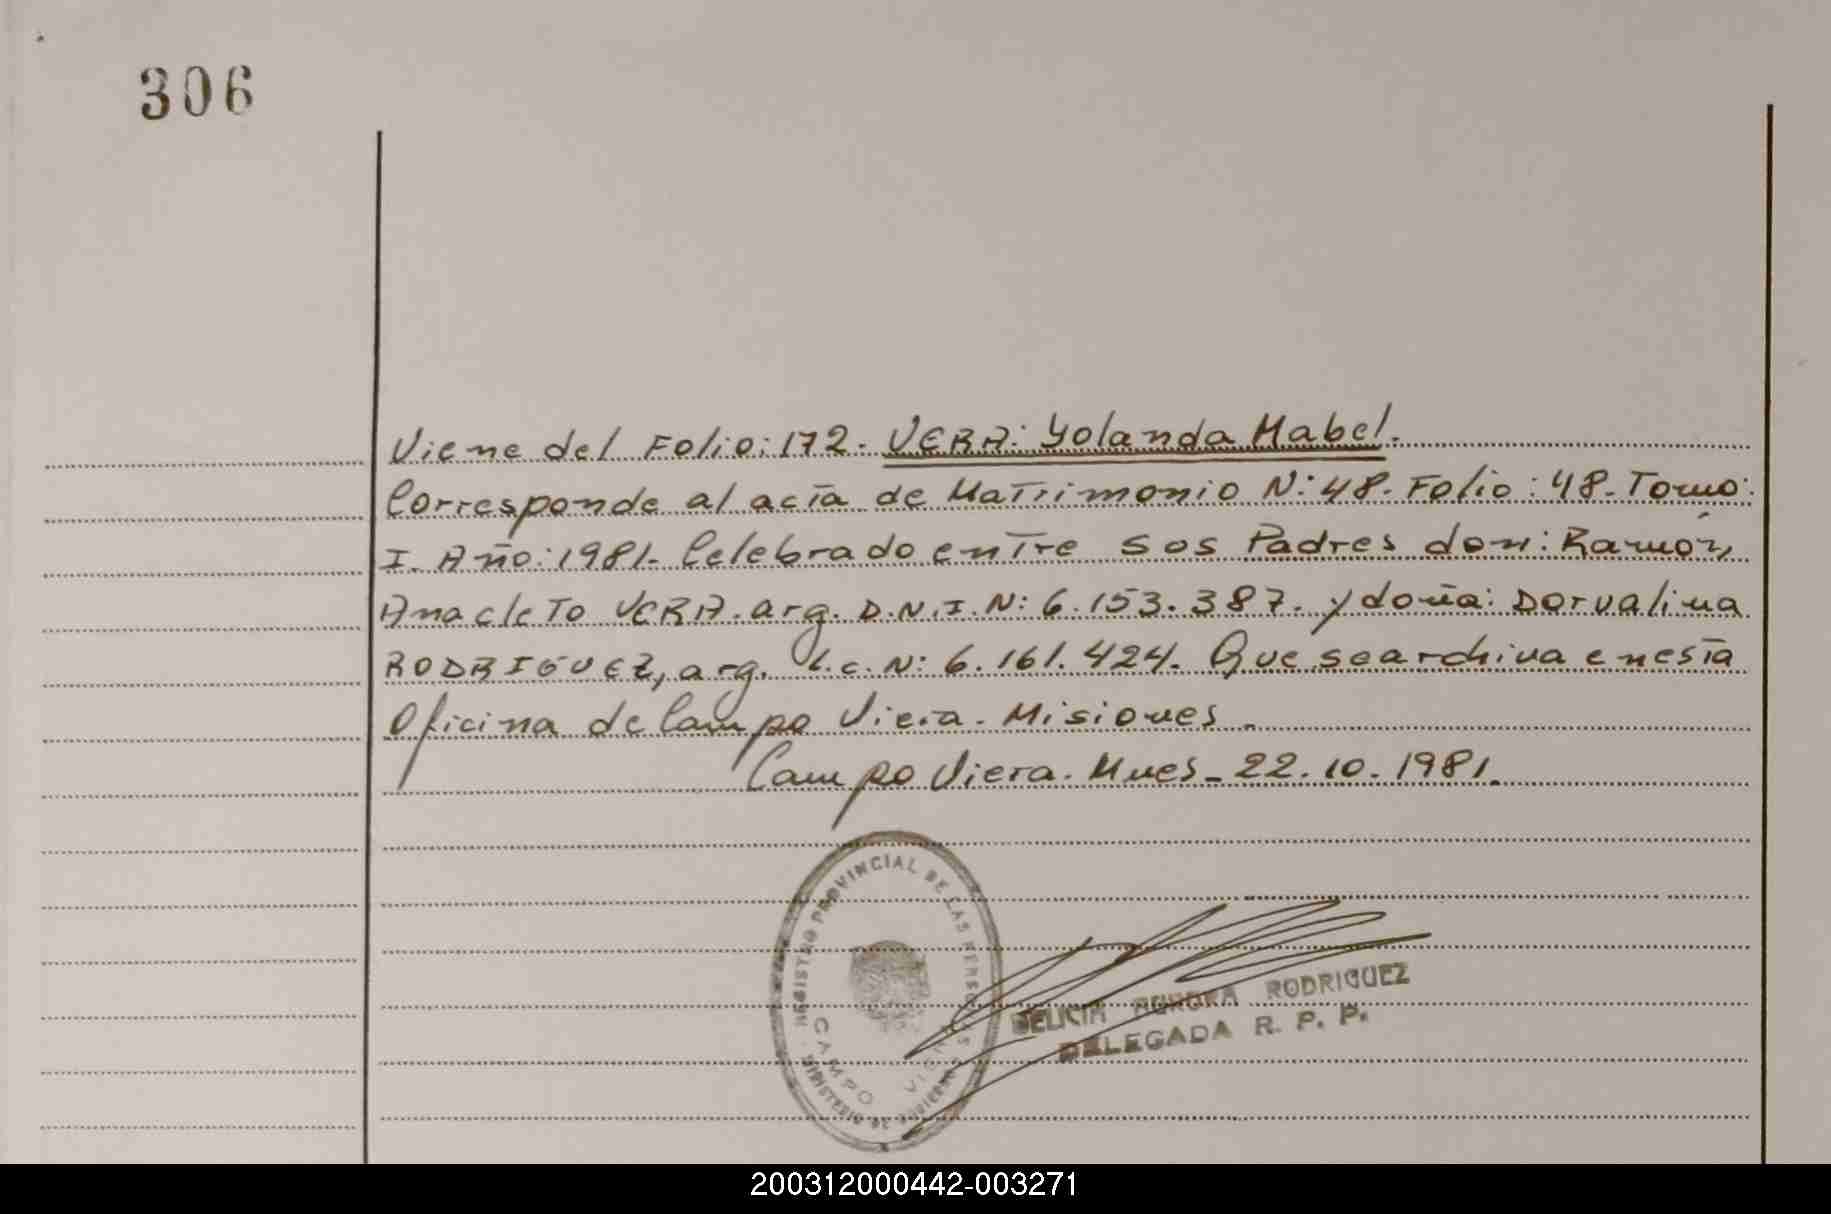 306
Viene del Folio: 172. VERA: Yolanda Mabel.
Corresponde al acta de Matrimonio N: 48. Folio: 48. Tomo:
I. Año: 1981. Celebrado entre sos Padres don: Ramón,
Anacleto VERA. arg. D.N.I. N: 6.153.387. y doña: Dorvalina
RODRIGUEZ, arg. L.c. N: 6.161.424. Que se archiva en esta
Oficina de Campo Viera. Misiones.
Campo Viera. Mnes. 22.10.1981.
REGISTRO PROVINCIAL DE LAS PERSONAS
CAMPO VIERA
MINISTERIO DE GOBIERNO
DELICIA AURORA RODRIGUEZ
DELEGADA R. P. P.
200312000442-003271